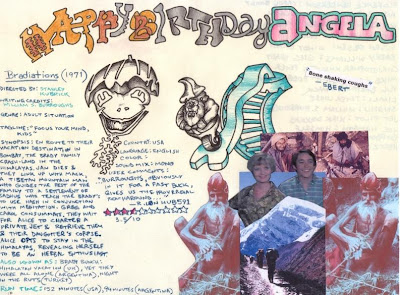 HAPPY BIRTHDAY ANGELA
Bradiations (1971)
DIRECTED BY: STANLEY
KUBRICK
WRITING CREDITS:
WILLIAM S. BURROUGHS
GENRE: ADULT SITUATION
TAGLINE: "FOCUS YOUR MIND,
KIDS"
SYNOPSIS: EN ROUTE TO THEIR
VACATION DESTINATION IN
BOMBAY, THE BRADY FAMILY
CRASH-LAND IN THE
HIMALAYAS. JAN DIES &
THEY LINK UP WITH MACK,
A TIBETAN MOUNTAIN MAN
WHO GUIDES THE REST OF THE
FAMILY TO A SETTLEMENT OF
YOGIS WHO TEACH THE BRADYS
TO USE HASH IN CONJUNCTION
WITH MEDITATION. GREG AND
CAROL CONSUMMATE, THEY WAIT
FOR ALICE TO CHARTER A
PRIVATE JET & RETRIEVE THEM
& THEIR DAUGHTER'S CORPSE.
ALICE OPTS TO STAY IN THE
HIMALAYAS, REVEALING HERSELF
TO BE AN HERBAL ENTHUSIAST
ALSO KNOWN AS: BRADY BUNCH:
HIMALAYAN VACATION (UK), YETI THEY
WERE ALL ALONE (ARGENTINA), RIGHT
IN THE BUTTS (TURKEY)
RUN TIME: 152 MINUTES (USA), 94 MINUTES (ARGENTINA)
COUNTRY: USA
LANGUAGE: ENGLISH
COLOR:
SOUND MIX: MONO
USER COMMENTS:
"BURROUGHS, OBVIOUSLY
IN IT FOR A FAST BUCK,
GIVES US THE
3.5/10
"Bone shaking coughs"
- EBERT